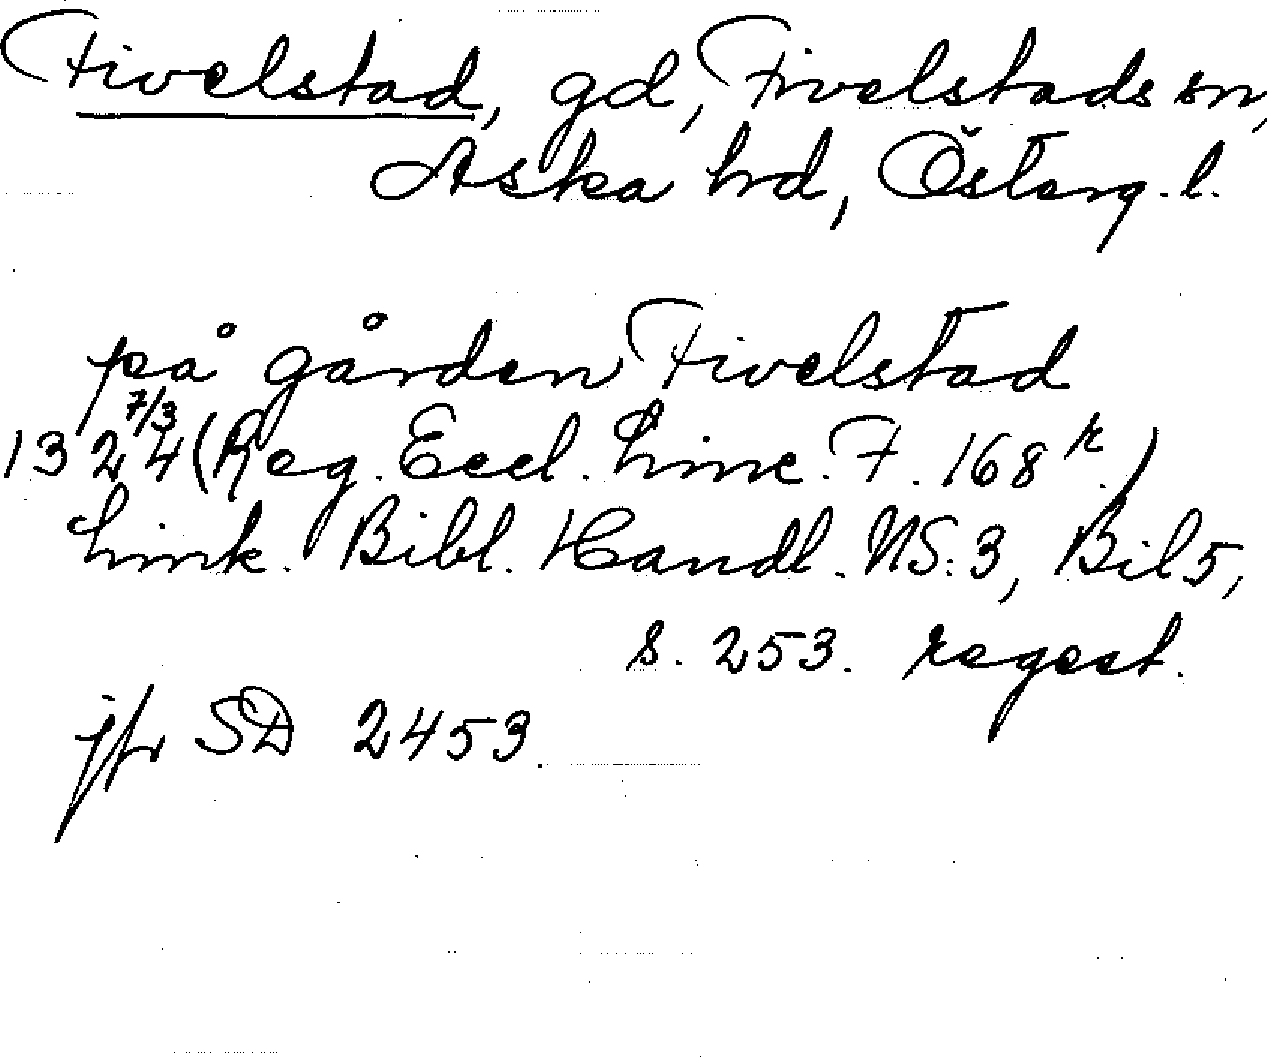 Fivelstad, gd, Fivelstads sn,
Aska hd, Österg. l.
på gården Fivelstad
1324 7/3 (Reg. Eccl. Linc. F. 168 r.)
Link. Bibl. Handl. NS:3, Bil 5,
s. 253. regest.
jfr SD 2453.